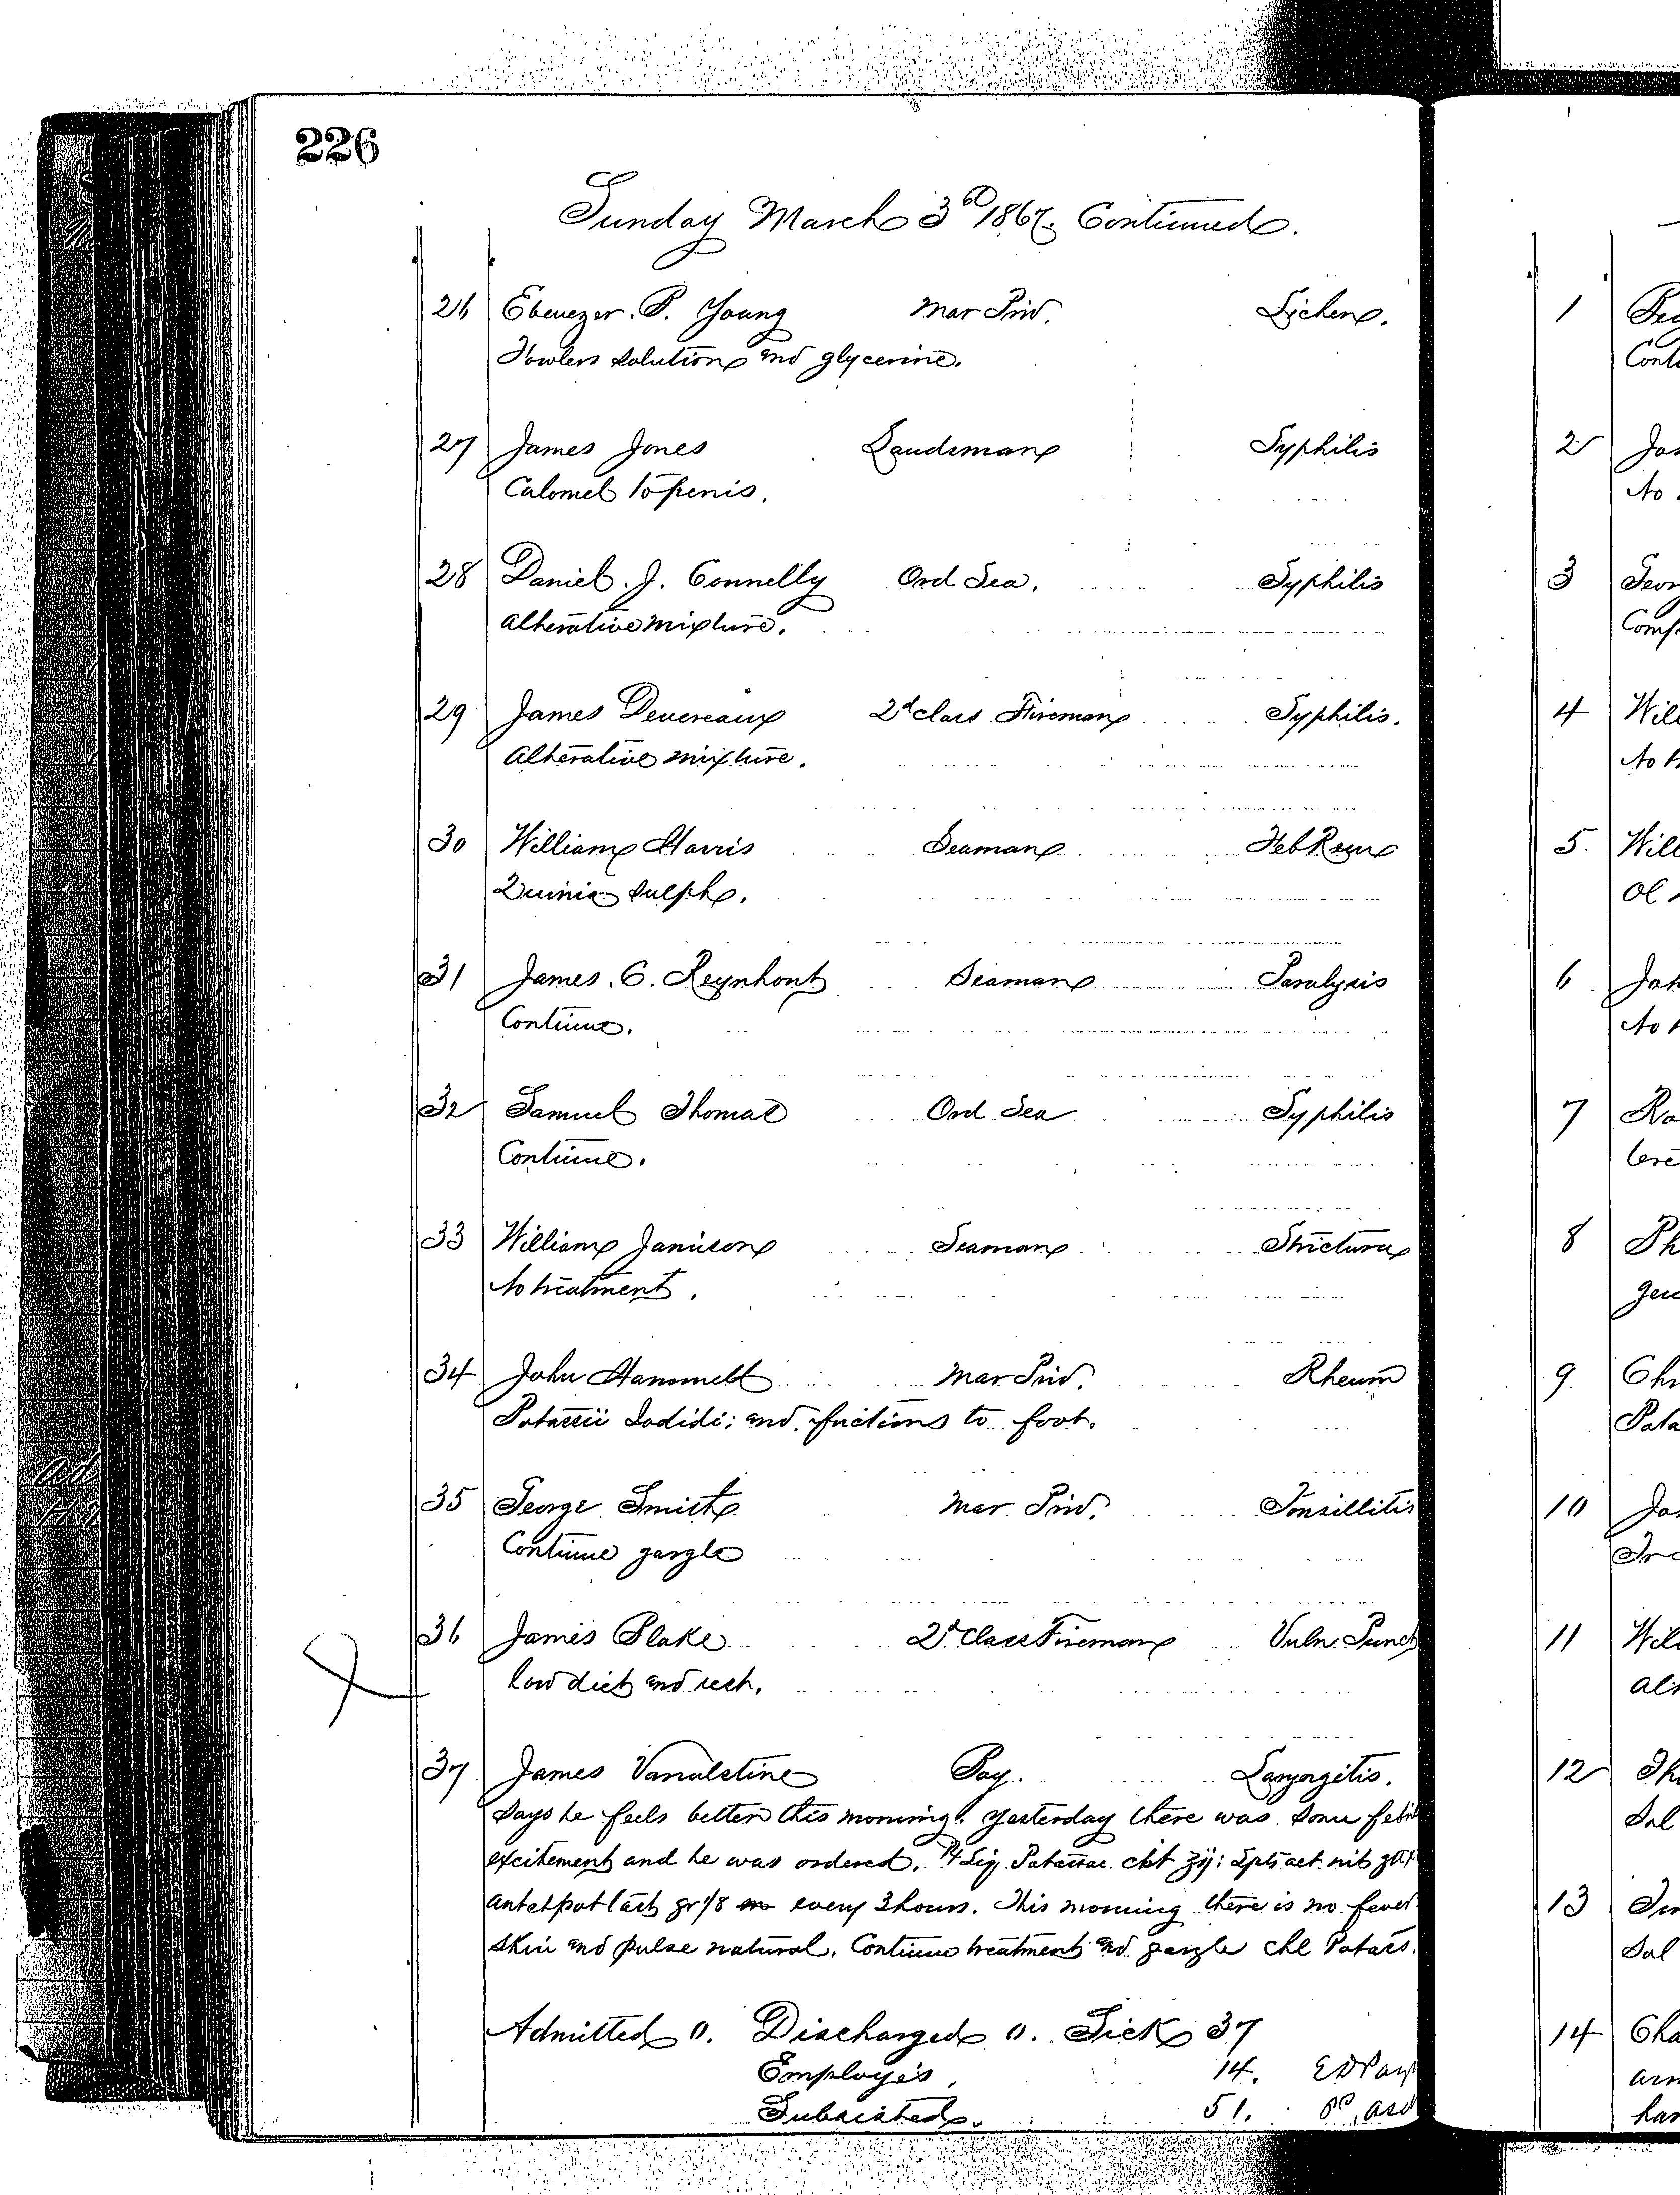 226
Sunday March 3d 1867. Continued.
26 Ebenezer. P. Young Mar Priv. Lichen.
Fowlers solution and glycerine.
27 James Jones Landsman Syphilis
Calomel to penis.
28 Daniel. J. Connelly Ord Sea. Syphilis
Alterative mixture.
29 James Devereaux 2d class Fireman Syphilis.
Alterative mixture.
30 William Harris Seaman Feb Rem
Quinia Sulph.
31 James. C. Reynhout Seaman Paralysis
Continue.
32 Samuel Thomas Ord Sea Syphilis
Continue.
33 William Jamison Seaman Strictura
No treatment.
34 John Hammell Mar Priv. Rheum
Potassii Iodidi: and frictions to foot.
35 George Smith Mar Priv. Tonsillitis
Continue gargle
36 James Blake 2d Class Fireman Vuln. Punct
low diet and rest.
37 James Vanalstine Pay. Laryngitis.
Says he feels better this morning. Yesterday there was some febril
excitement and he was ordered. Liq. Potassae cit Spts aet nit
Ant et pot tart gr 1/8 every 3 hours. This morning there is no fever
skin and pulse natural. Continue treatment and gargle Chl Potass.
Admitted 0. Discharged 0. Sick 37
Employés. 14.
Subsisted. 51.
1
2 No
3
4 Will
5. Will
Ol
6
No
7
8
9
10
11 Will
12
Sal
13
Sal
14